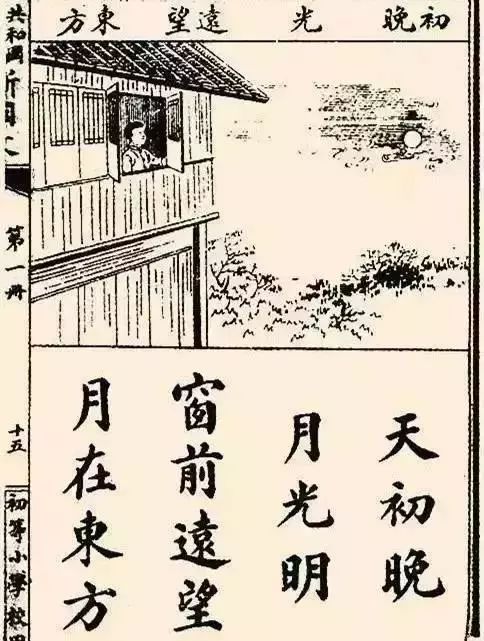 初晚　光　遠望　東方
天初晚
月光明
窗前遠望
月在東方
共和國新國文
第一冊
十五
初等小學校用